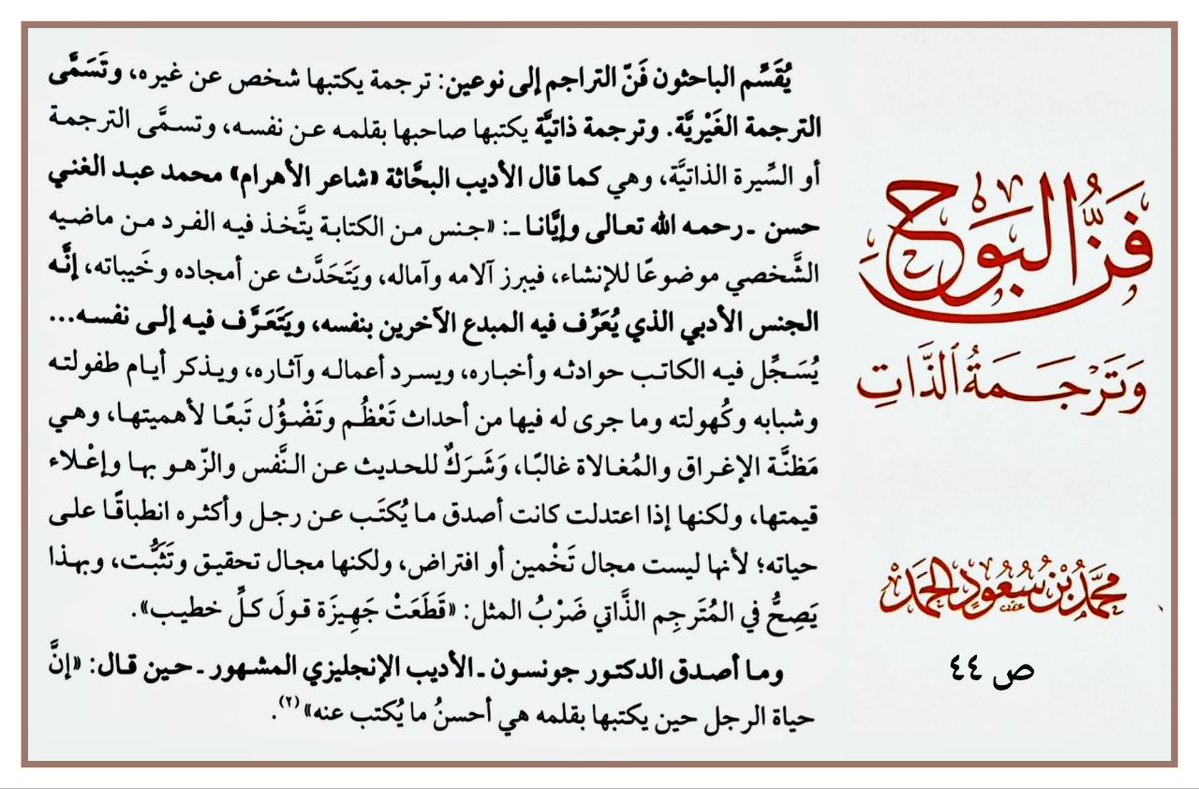 يُقَسِّم الباحثون فَنّ التراجم إلى نوعين: ترجمة يكتبها شخص عن غيره، وتَسَمَّى
الترجمة الغَيْريَّة. وترجمة ذاتيَّة يكتبها صاحبها بقلمه عن نفسه، وتسمَّى الترجمة
أو السِّيرة الذاتيَّة، وهي كما قال الأديب البحَّاثة «شاعر الأهرام» محمد عبد الغني
حسن ـ رحمه الله تعالى وإيَّانا ـ: «جنس من الكتابة يتَّخذ فيه الفرد من ماضيه
الشَّخصي موضوعًا للإنشاء، فيبرز آلامه وآماله، ويَتَحَدَّث عن أمجاده وخَيباته، إنَّه
الجنس الأدبي الذي يُعَرِّف فيه المبدع الآخرين بنفسه، ويَتَعَرَّف فيه إلى نفسه...
يُسَجِّل فيه الكاتب حوادثه وأخباره، ويسرد أعماله وآثاره، ويذكر أيام طفولته
وشبابه وكُهولته وما جرى له فيها من أحداث تَعْظُم وتَضْؤُل تَبعًا لأهميتها، وهي
مَظنَّة الإغراق والمُغالاة غالبًا، وَشَرَكٌ للحديث عن النَّفس والزّهو بها وإعْلاء
قيمتها، ولكنها إذا اعتدلت كانت أصدق ما يُكتَب عن رجل وأكثره انطباقًا على
حياته؛ لأنها ليست مجال تَخْمين أو افتراض، ولكنها مجال تحقيق وتَثَبُّت، وبهذا
يَصِحُّ في المُتَرجِم الذَّاتي ضَرْبُ المثل: «قَطَعَتْ جَهِيزَة قولَ كلِّ خطيب».
وما أصدق الدكتور جونسون ـ الأديب الإنجليزي المشهور ـ حين قال: «إنَّ
حياة الرجل حين يكتبها بقلمه هي أحسنُ ما يُكتب عنه» (٢).
فَنُّ البَوْحِ
وَتَرْجَمَةُ ٱلذَّاتِ
مُحَمَّدُ بْنُ سُعُودٍ الحَمَد
ص ٤٤